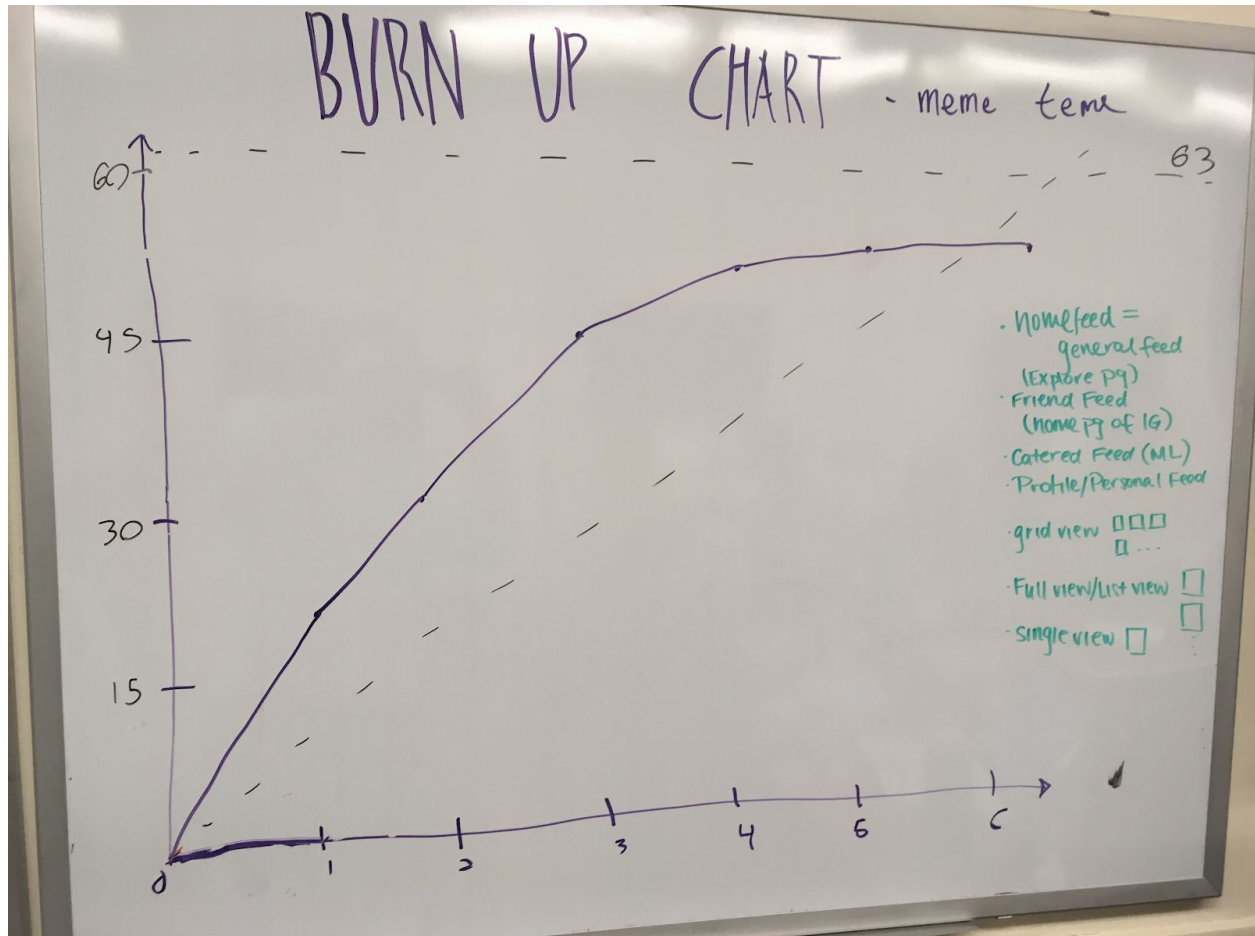 BURN UP CHART - meme teme
63
60
45
30
15
0
1
2
3
4
5
6
· Homefeed =
general feed
(Explore pg)
· Friend Feed
(home pg of IG)
· Catered Feed (ML)
· Profile/Personal Feed
· grid view
...
· Full view/List view
· single view